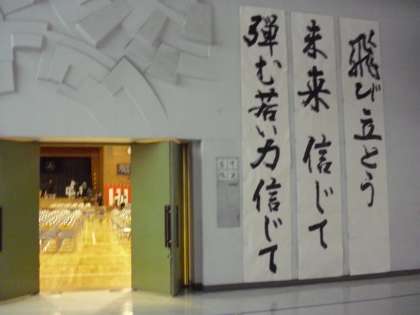 飛び立とう
未来 信じて
弾む若い力 信じて